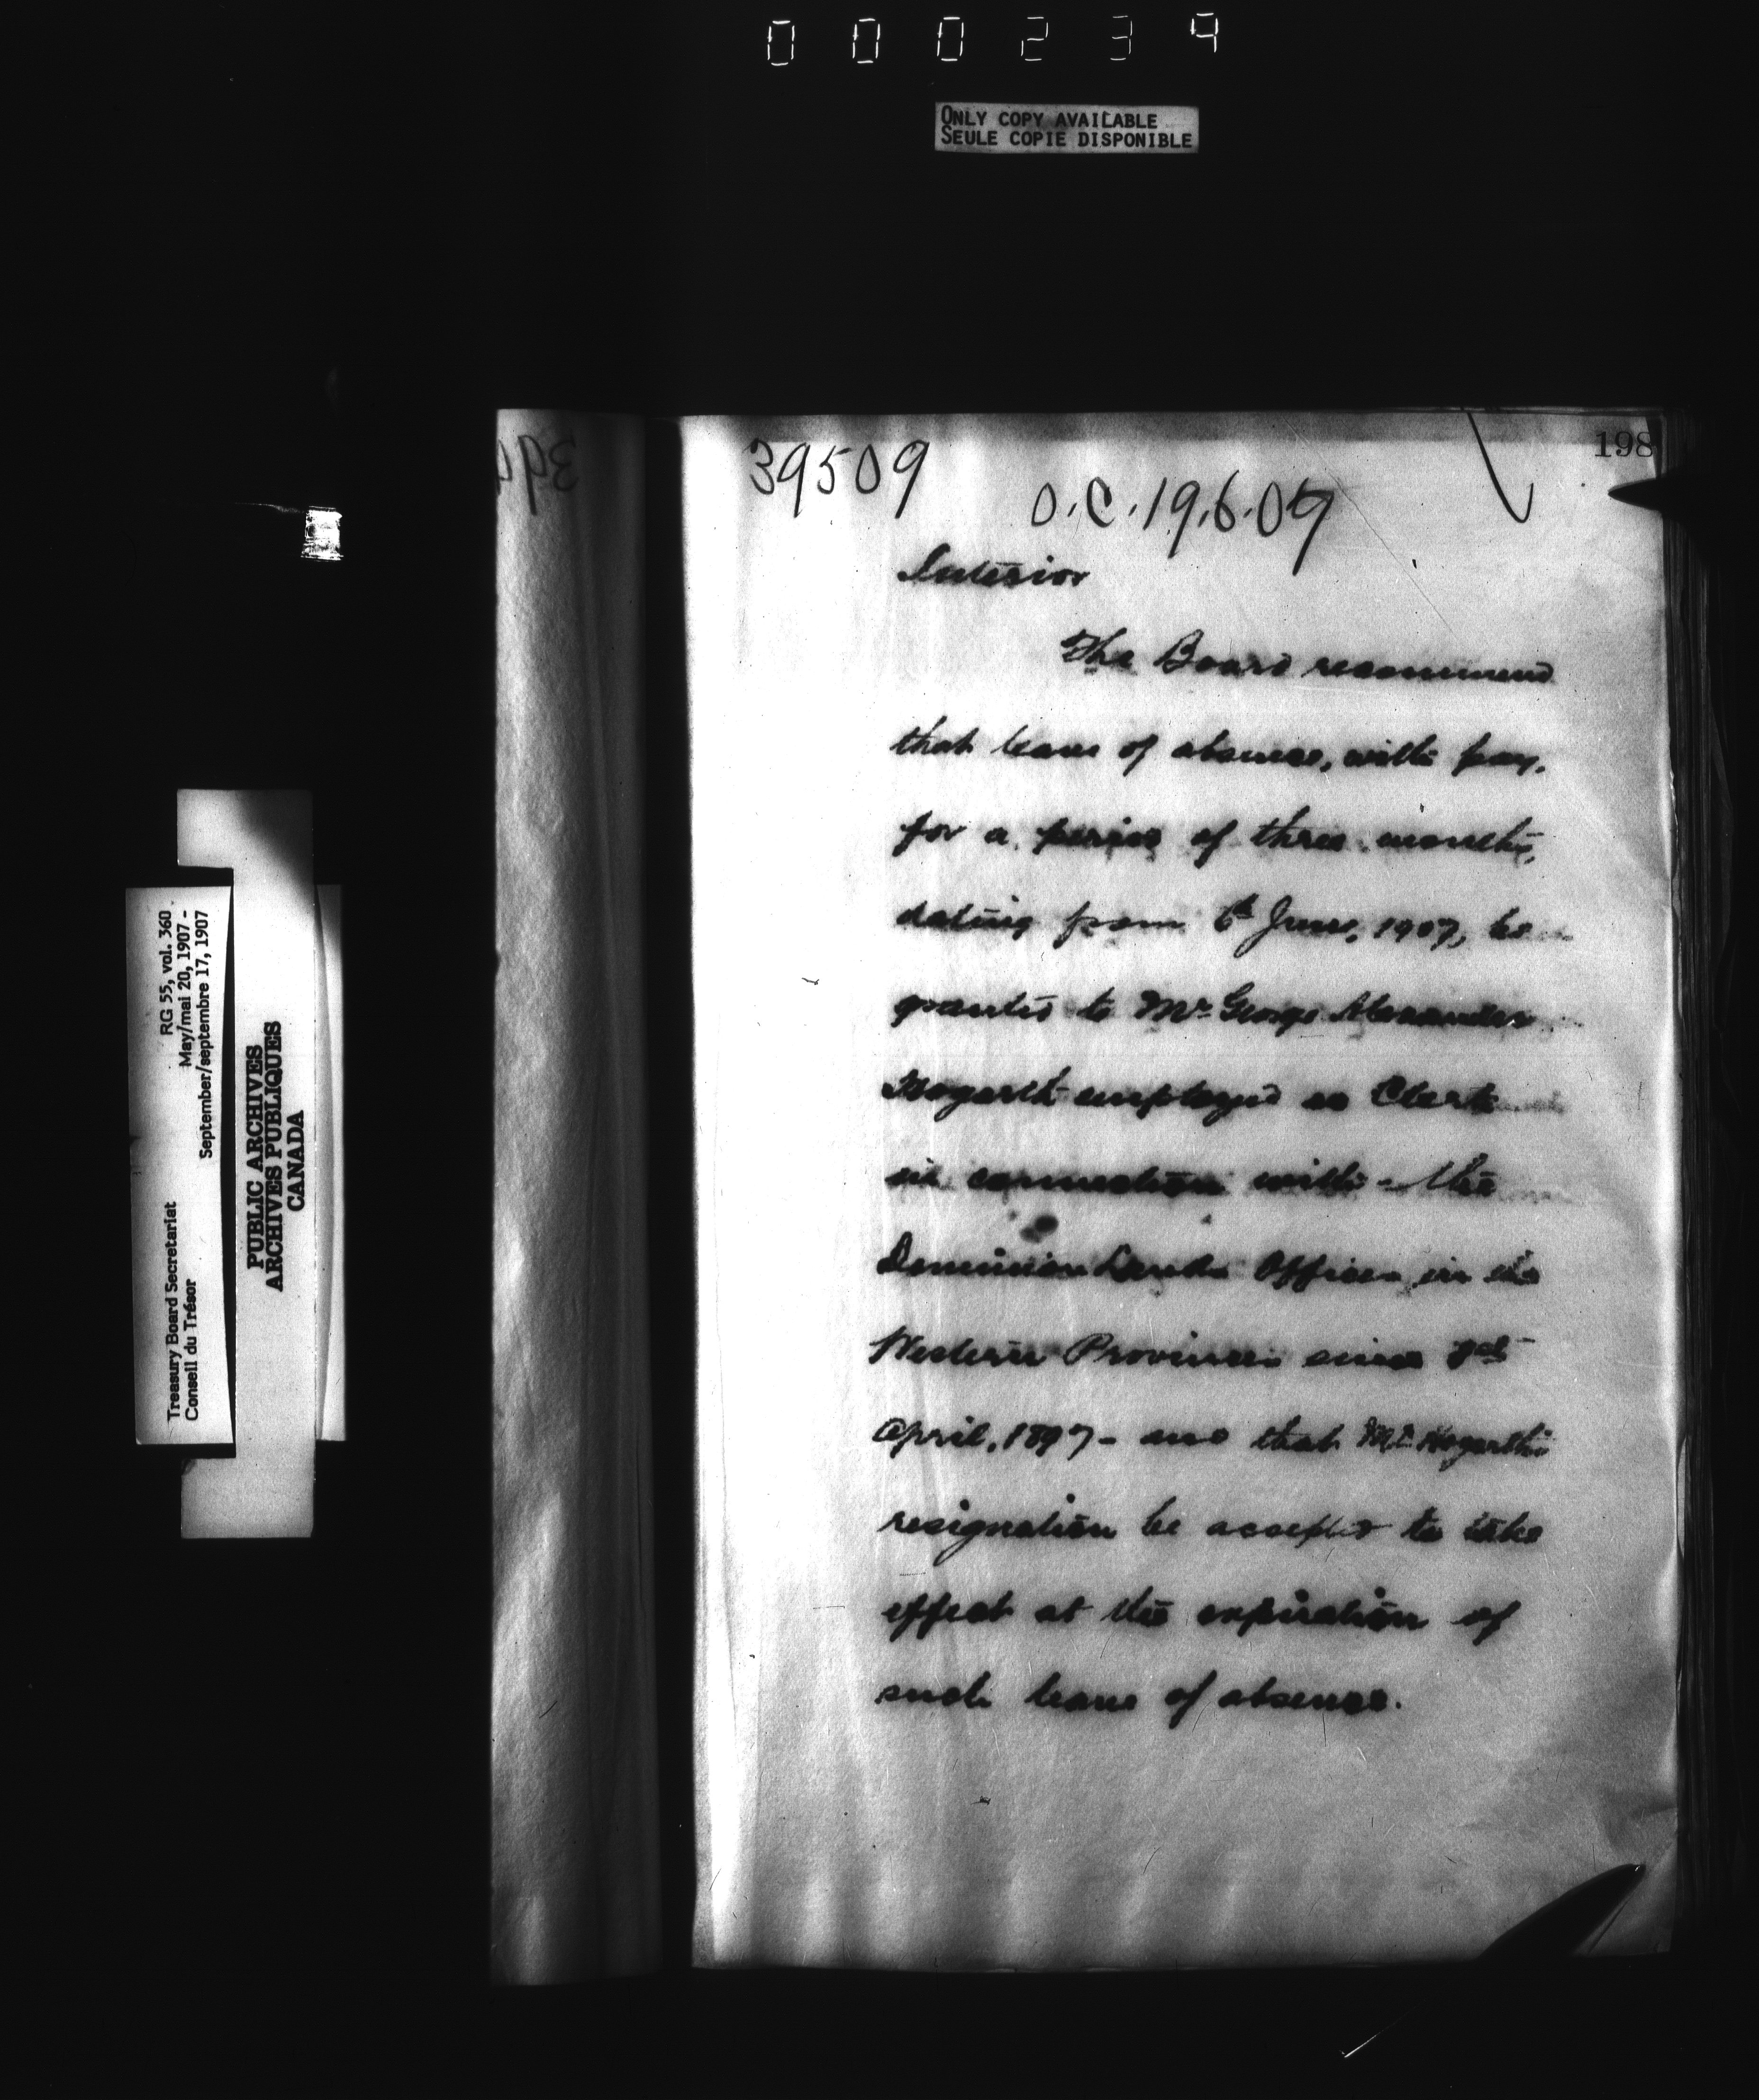 000234
ONLY COPY AVAILABLE
SEULE COPIE DISPONIBLE
198
39509
O.C. 19.6.07
Interior
The Board recommend
that leave of absence, with pay,
for a period of three months,
dating from 6th June, 1907, be
granted to Mr. George Alexander
Hogarth employed as Clerk
in connection with the
Dominion Lands Offices in the
Western Provinces since 1st
April, 1897 - and that Mr. Hogarth's
resignation be accepted to take
effect at the expiration of
such leave of absence.
RG 55, vol. 360
May/mai 20, 1907 -
September/septembre 17, 1907
Treasury Board Secretariat
Conseil du Trésor
PUBLIC ARCHIVES
ARCHIVES PUBLIQUES
CANADA